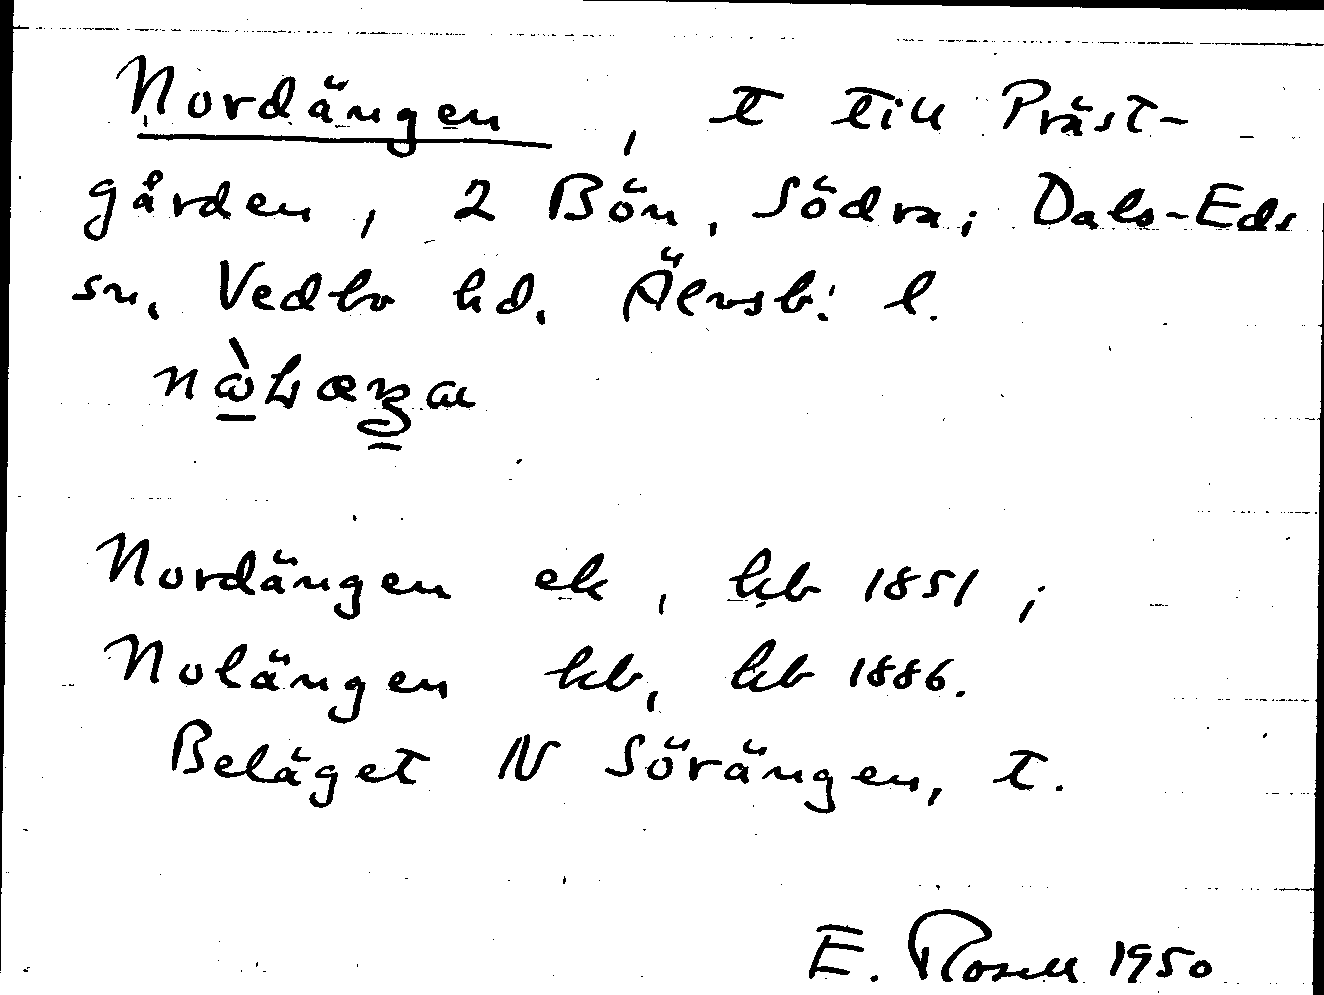 Nordängen, t till Präst-
gården, 2 Bön, Södra; Dals-Eds
sn, Vedbo hd. Älvsb: l.
Nordängen ek, kb 1851;
Nolängen hb, kb 1886.
Beläget N Sörängen, t.
E. Rosell 1950